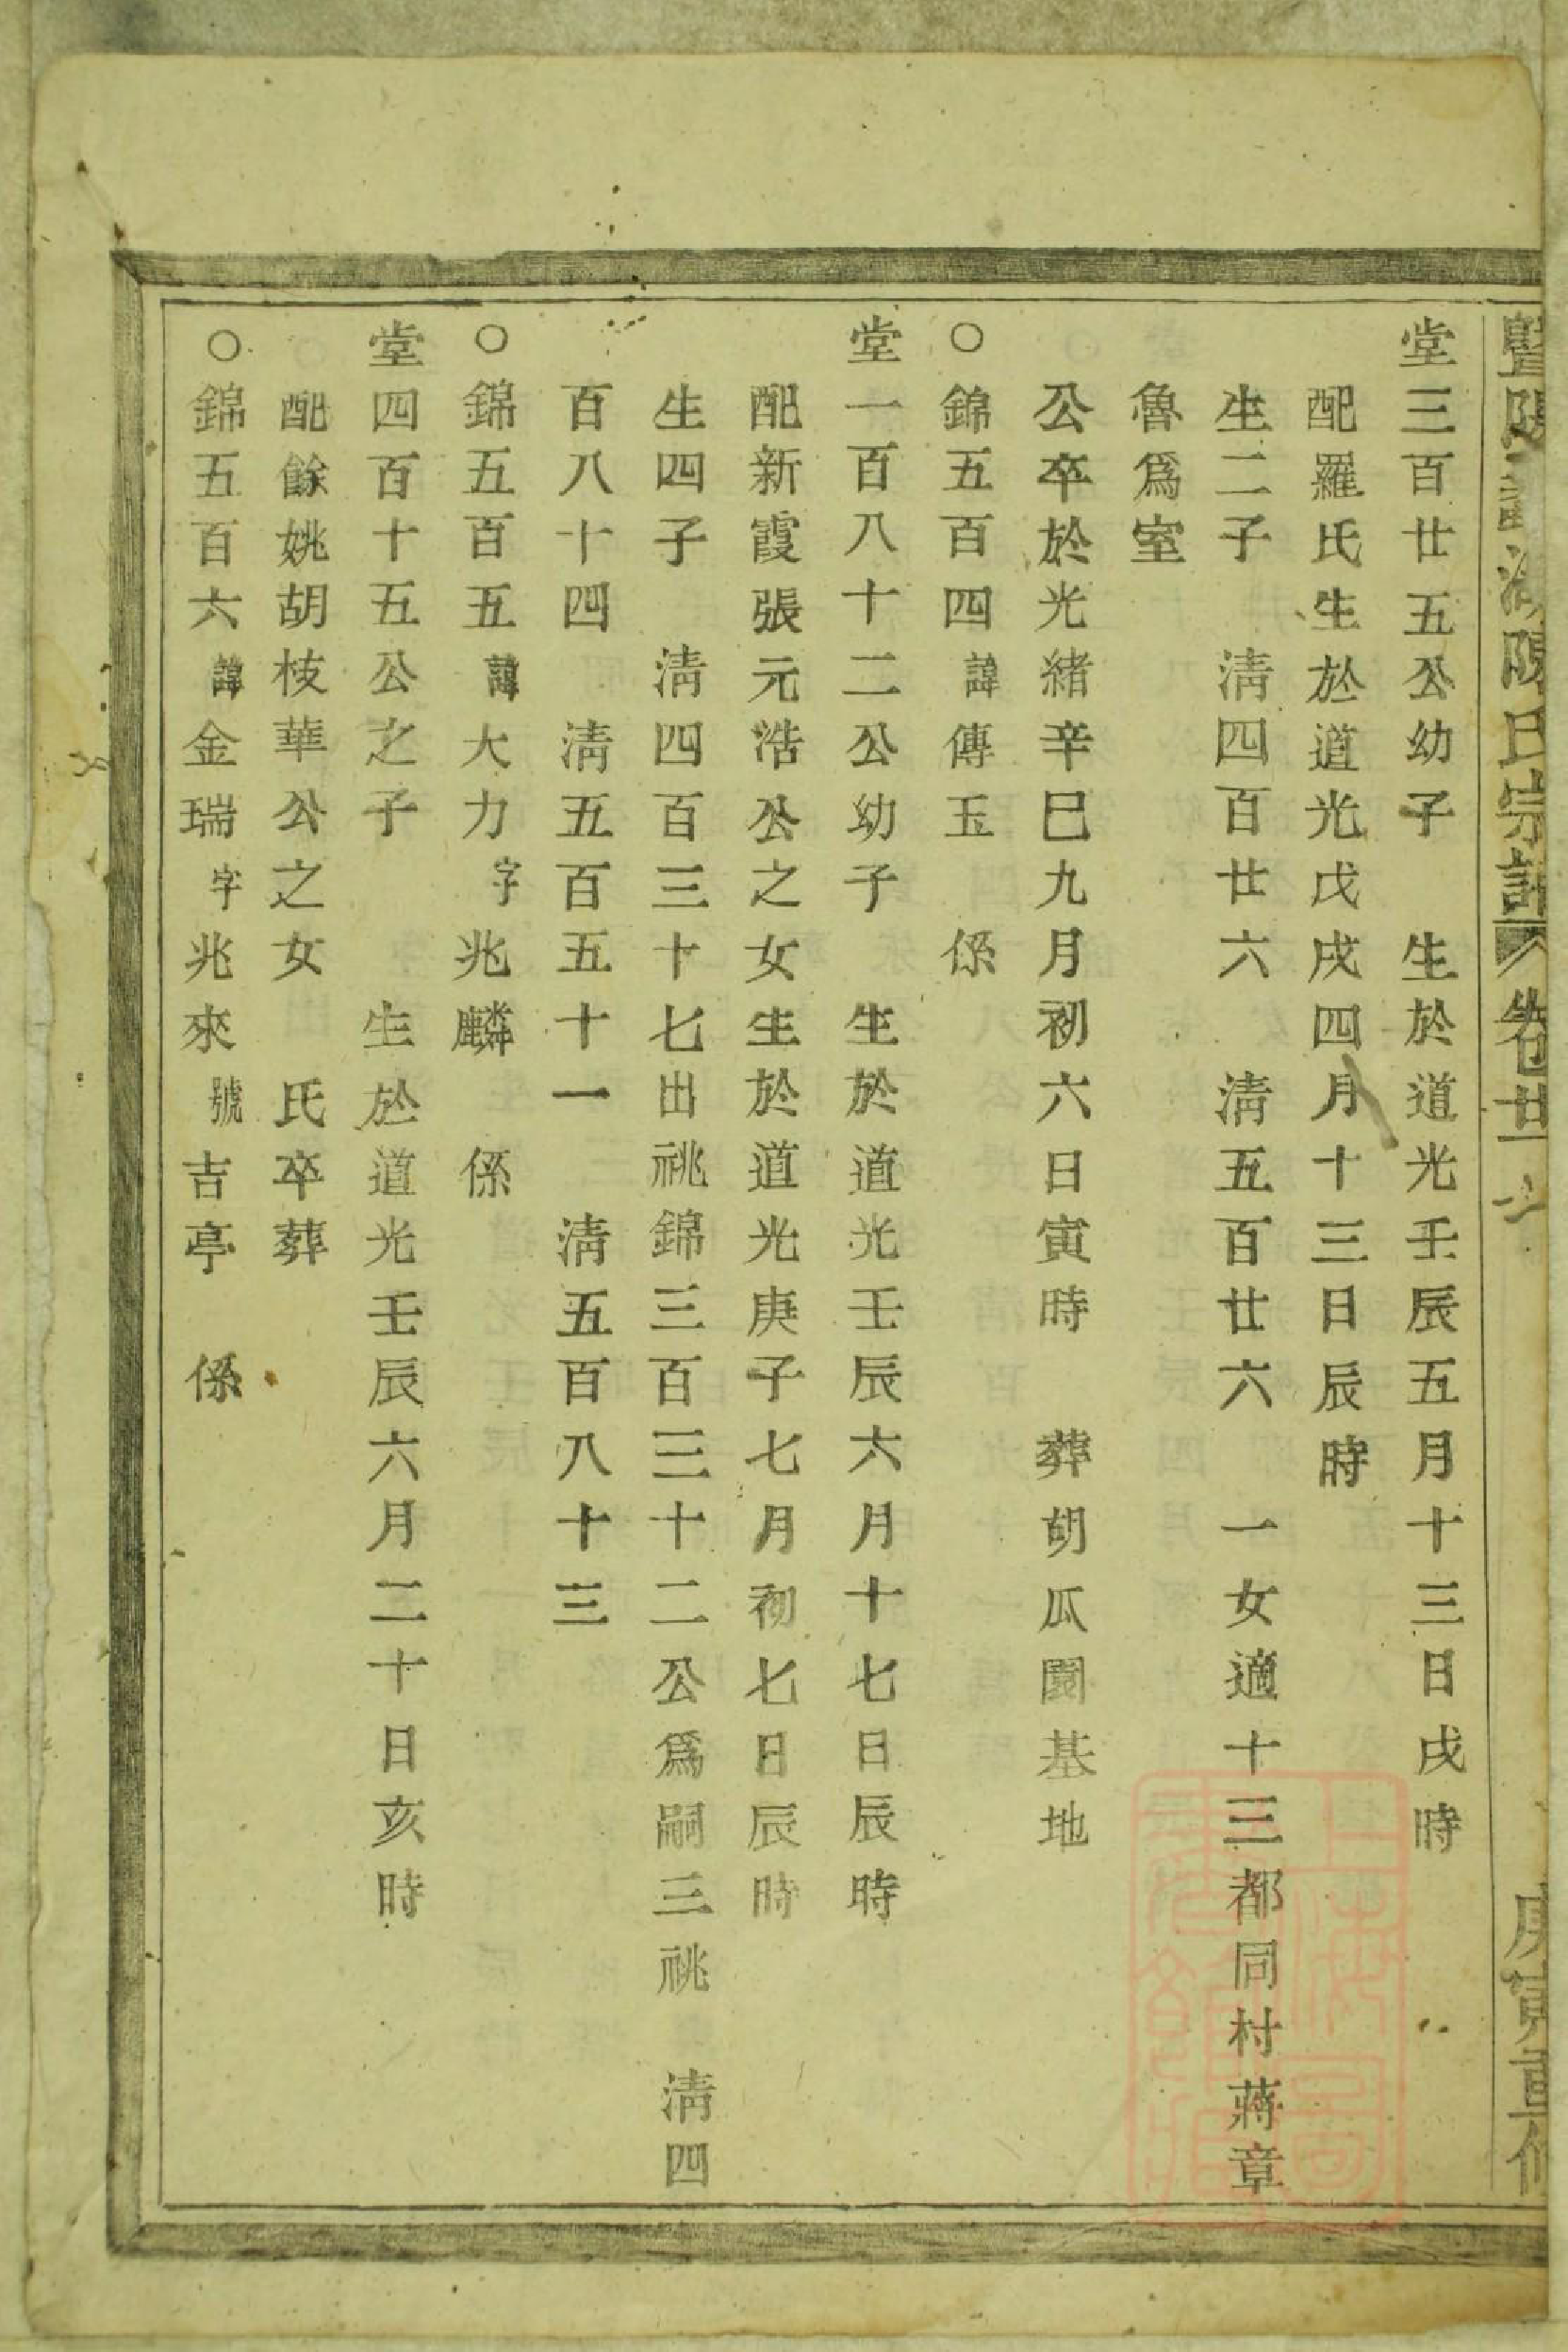 暨陽 湖陳氏宗譜 卷廿一 庚寅重修
堂三百廿五公幼子 生於道光壬辰五月十三日戌時
配羅氏生於道光戊戌四月十三日辰時
生二子 淸四百廿六 淸五百廿六 一女適十三都同村蔣章
魯爲室
公卒於光緒辛巳九月初六日寅時 葬胡瓜園基地
○錦五百四諱傳玉 係
堂一百八十二公幼子 生於道光壬辰六月十七日辰時
配新霞張元浩公之女生於道光庚子七月初七日辰時
生四子 淸四百三十七出祧錦三百三十二公爲嗣三祧 淸四
百八十四 淸五百五十一 淸五百八十三
○錦五百五諱大力字兆麟 係
堂四百十五公之子 生於道光壬辰六月二十日亥時
配餘姚胡枝華公之女 氏卒葬
○錦五百六諱金瑞字兆來號吉亭 係